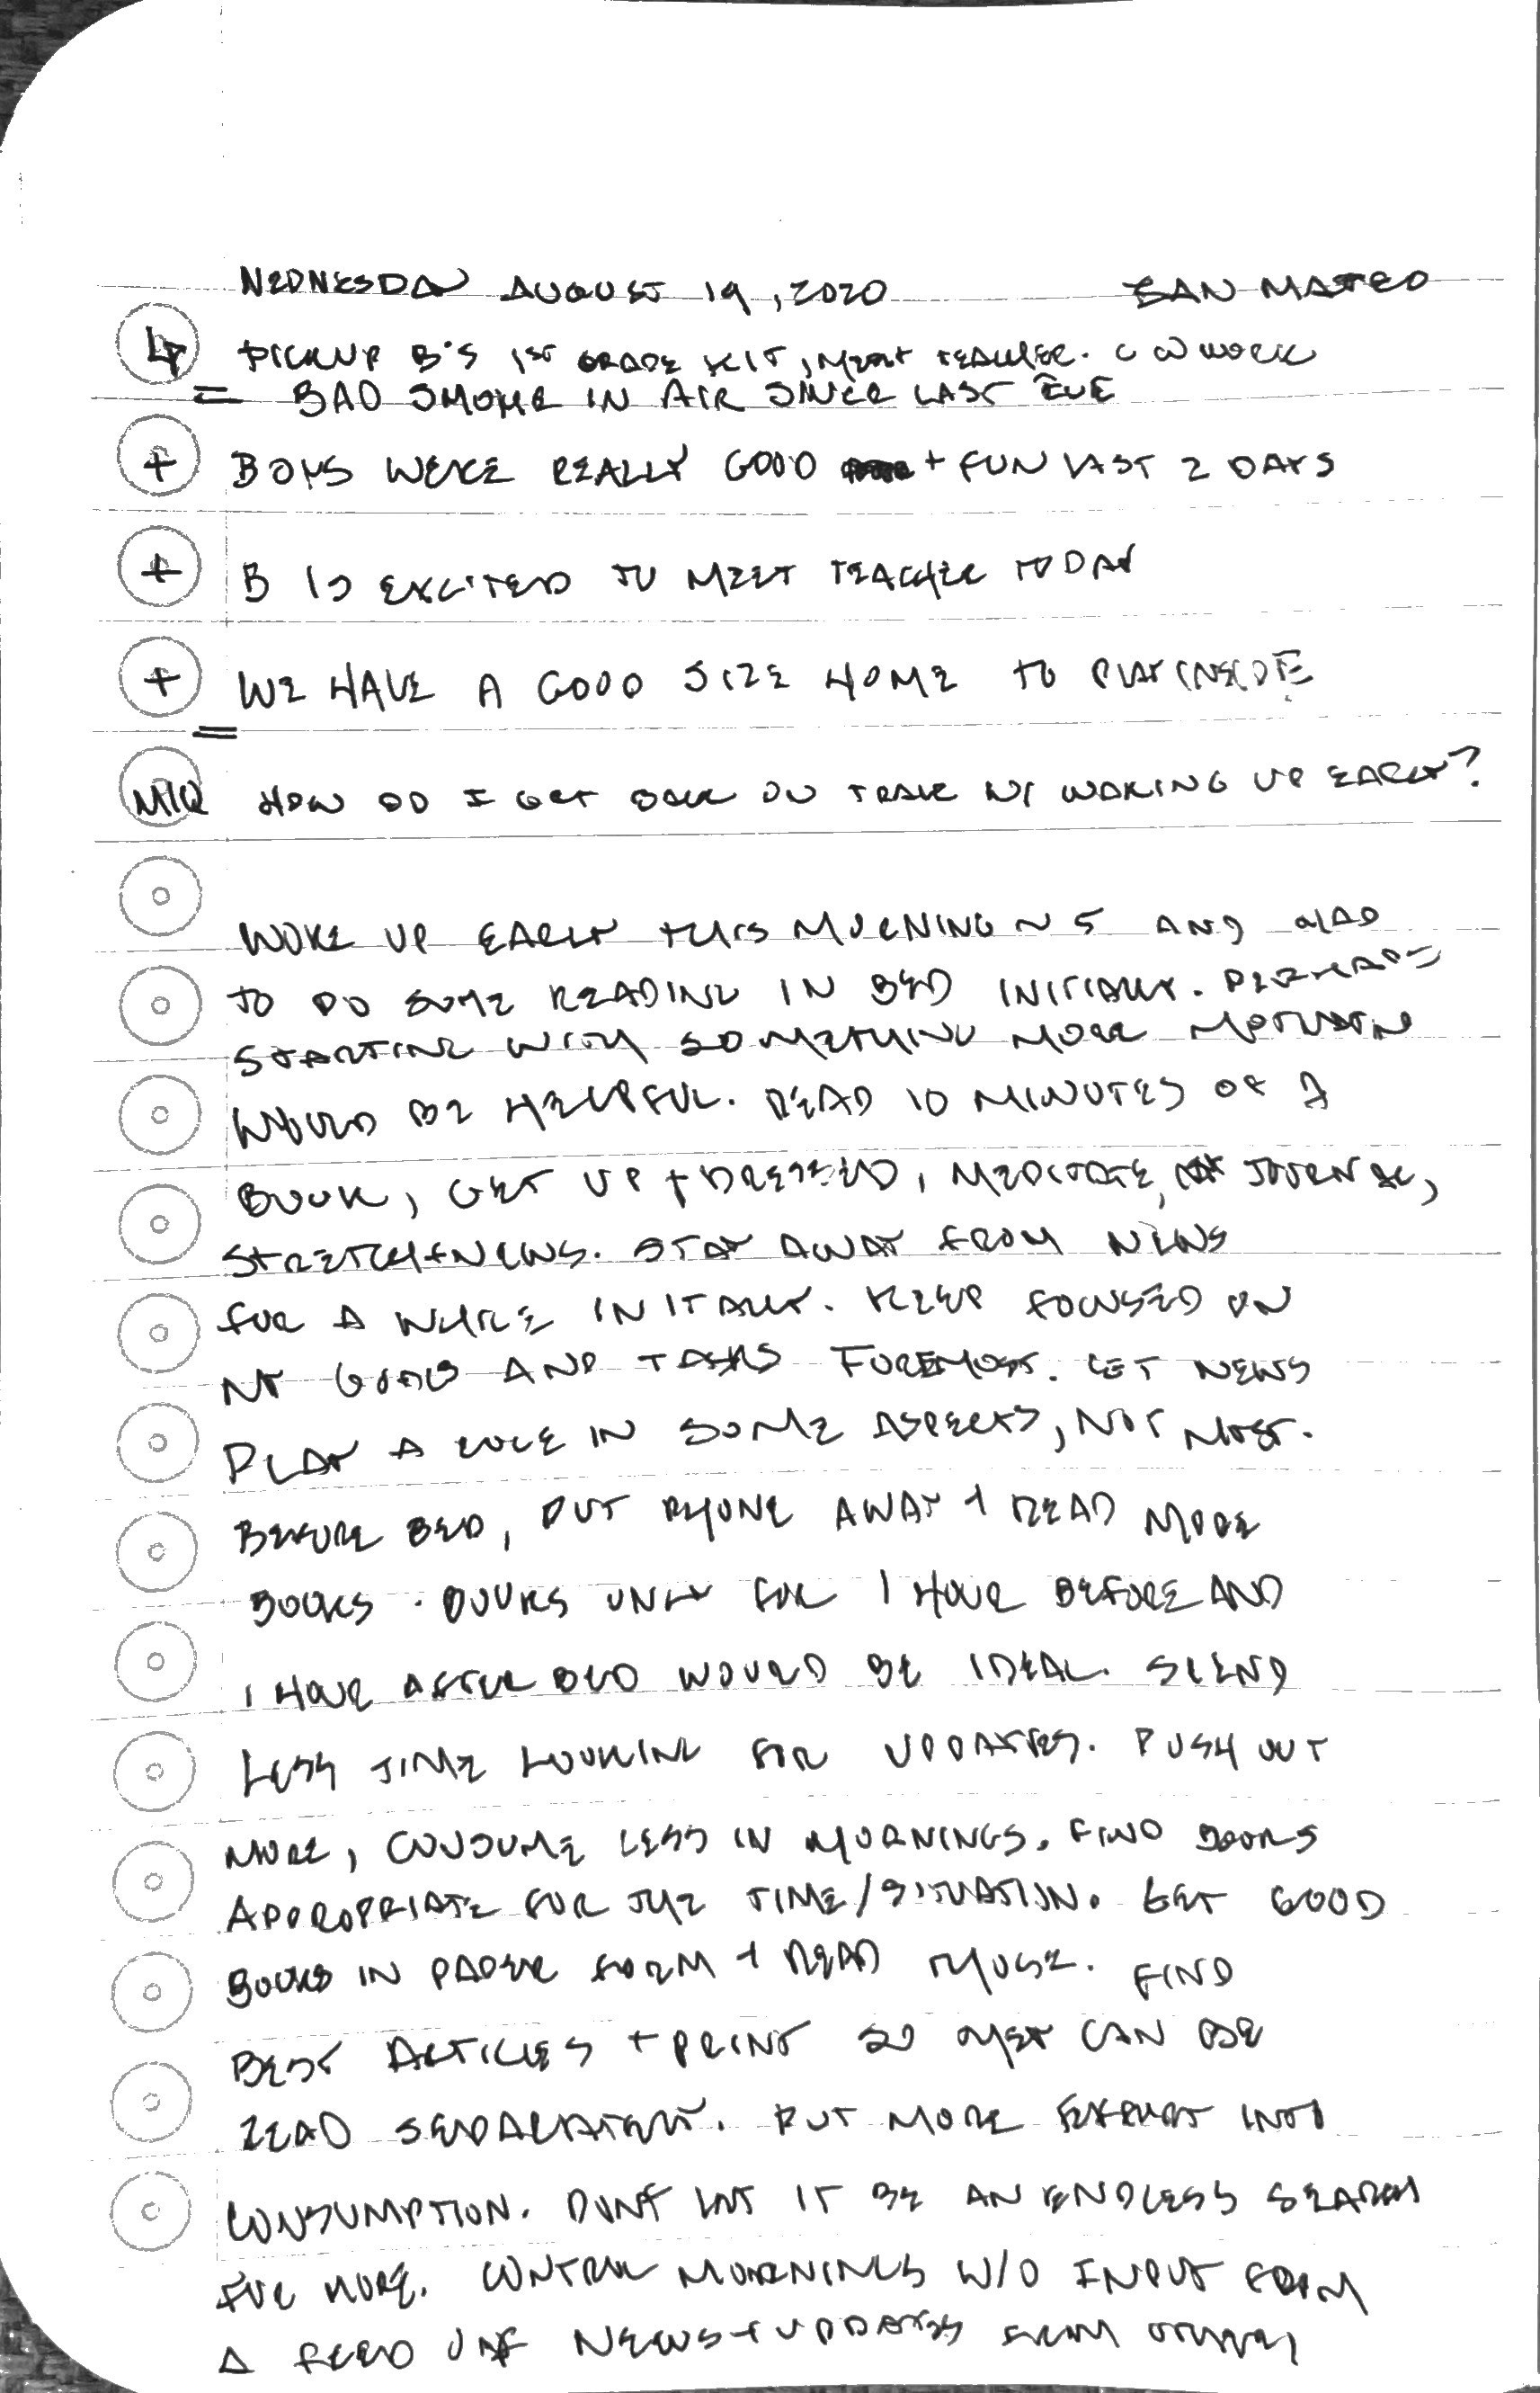 WEDNESDAY AUGUST 19, 2020 SAN MATEO
4 PICKUP B'S 1ST GRADE KIT, MEET TEACHER. C W WORK
= BAD SMOKE IN AIR SINCE LAST EVE
+ BOYS WERE REALLY GOOD + FUN LAST 2 DAYS
+ B IS EXCITED TO MEET TEACHER TODAY
+ WE HAVE A GOOD SIZE HOME TO PLAY INSIDE
=
MIQ HOW DO I GET BACK ON TRACK W/ WAKING UP EARLY?
WOKE UP EARLY THIS MORNING ~ 5 AND HAD
TO DO SOME READING IN BED INITIALLY. PERHAPS
STARTING WITH SOMETHING MORE MOTIVATING
WOULD BE HELPFUL. READ 10 MINUTES OF A
BOOK, GET UP + DRESSED, MEDITATE, JOURNAL,
STRETCH + NEWS. STAY AWAY FROM NEWS
FOR A WHILE INITIALLY. KEEP FOCUSED ON
MY GOALS AND TASKS FOREMOST. LET NEWS
PLAY A ROLE IN SOME ASPECTS, NOT MOST.
BEFORE BED, PUT PHONE AWAY + READ MORE
BOOKS. BOOKS ONLY FOR 1 HOUR BEFORE AND
1 HOUR AFTER BED WOULD BE IDEAL. SPEND
LESS TIME LOOKING FOR UPDATES. PUSH OUT
MORE, CONSUME LESS IN MORNINGS. FIND BOOKS
APPROPRIATE FOR THE TIME/SITUATION. GET GOOD
BOOKS IN PAPER FORM + READ THOSE. FIND
BEST ARTICLES + PRINT SO THEY CAN BE
READ SEPARATELY. PUT MORE EFFORT INTO
CONSUMPTION. DON'T LET IT BE AN ENDLESS SEARCH
FOR MORE. CONTROL MORNINGS W/O INPUT FROM
A FEED OF NEWS + UPDATES FROM OTHERS